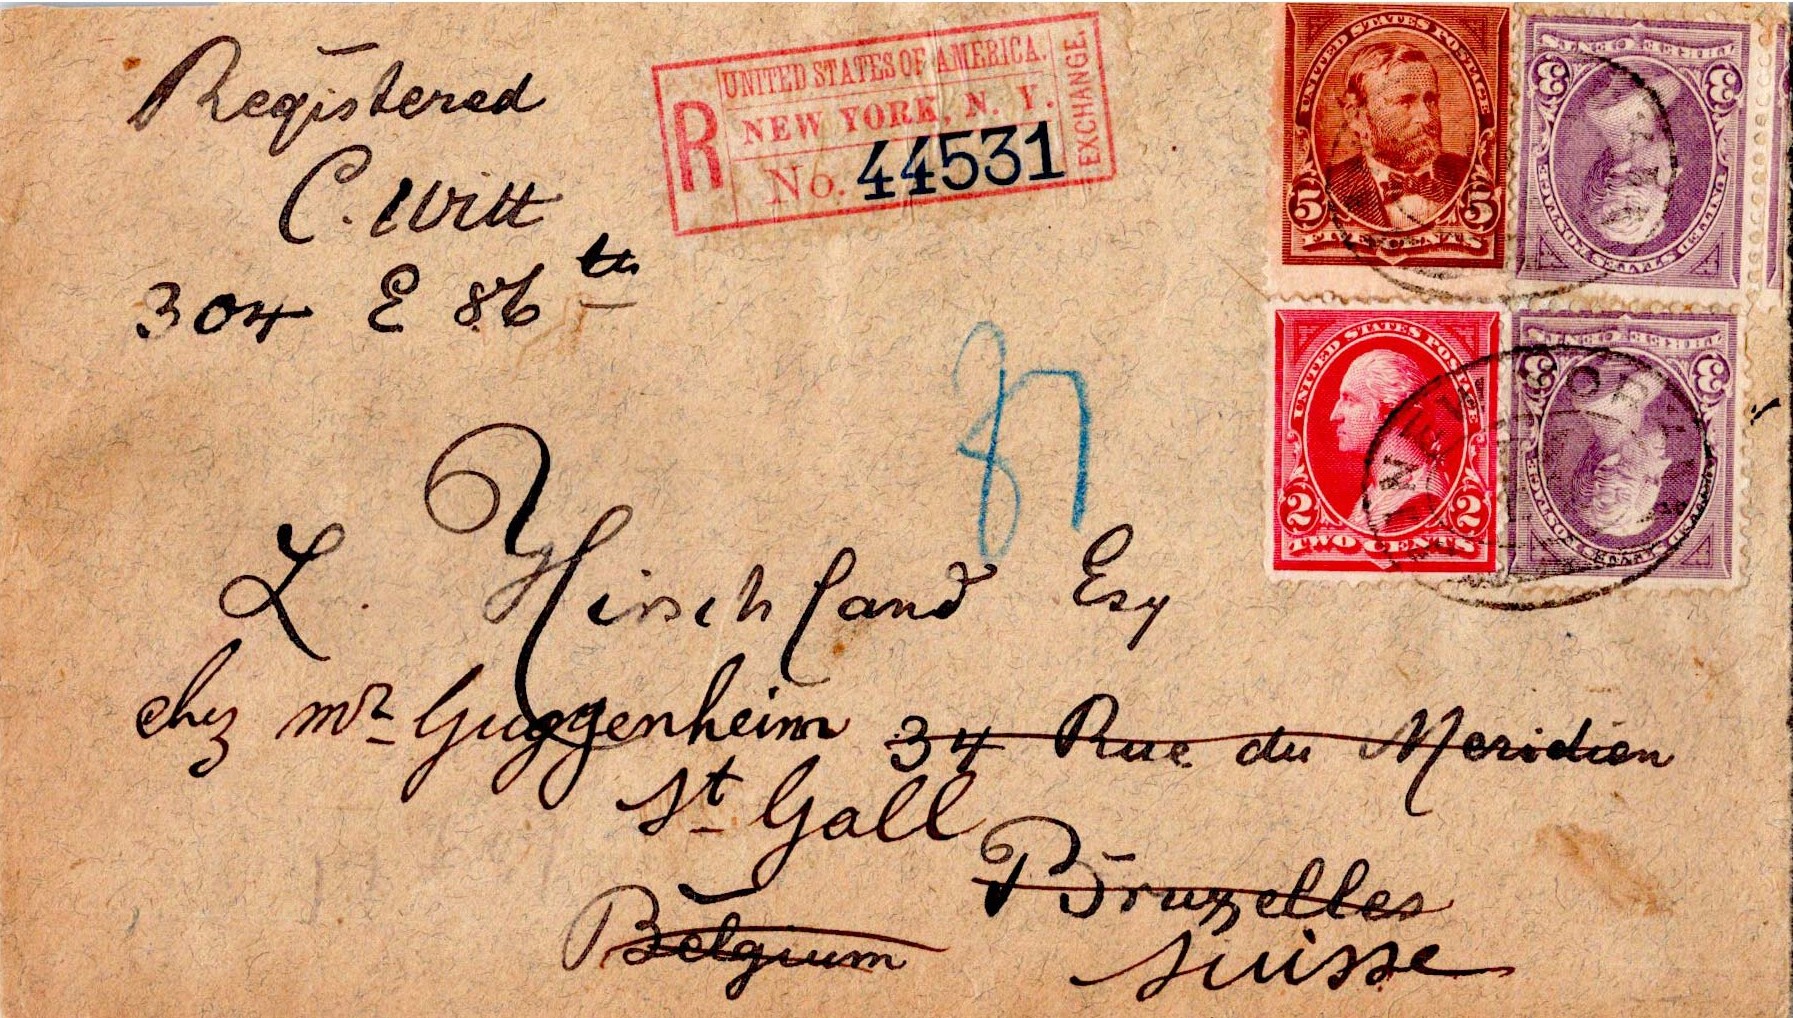 Registered
C. Witt
304 E 86th
UNITED STATES OF AMERICA.
R
NEW YORK, N. Y.
No. 44531
EXCHANGE.
UNITED STATES POSTAGE
5 5
FIVE CENTS
UNITED STATES POSTAGE
3 3
THREE CENTS
UNITED STATES POSTAGE
2 2
TWO CENTS
UNITED STATES POSTAGE
3 3
THREE CENTS
L. Hirschland Esq
chez Mr Guggenheim 34 Rue du Meridien
St Gall
Bruxelles
Belgium
Suisse